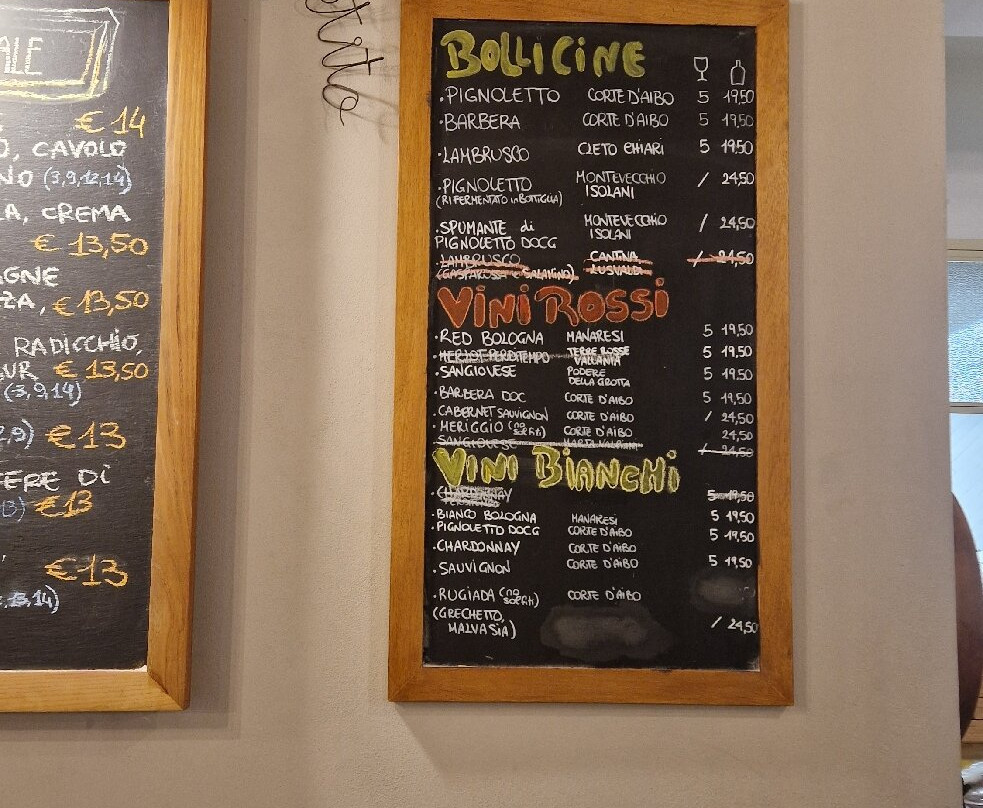 ALE
€ 14
O, CAVOLO
NO (3,9,12,14)
LA, CREMA
€ 13,50
AGNE
ZZA, €13,50
RADICCHIO,
UR € 13,50
(3,9,14)
2,9) €13
FERE Di
13) €13
€13
, 13,14)
BOLLICINE
·PIGNOLETTO CORTE D'AIBO 5 19,50
·BARBERA CORTE D'AIBO 5 19,50
·LAMBRUSCO CLETO CHIARI 5 19,50
·PIGNOLETTO MONTEVECCHIO / 24,50
(RIFERMENTATO in BOTTIGLIA) ISOLANI
·SPUMANTE di MONTEVECCHIO / 24,50
PIGNOLETTO DOCG ISOLANI
·LAMBRUSCO CANTINA / 24,50
(GASPAROSSA e SALAMINO) LUSVALDI
VINI ROSSI
·RED BOLOGNA MANARESI 5 19,50
·MERLOT PERDITEMPO TERRE ROSSE 5 19,50
VALLANIA
·SANGIOVESE PODERE 5 19,50
DELLA GROTTA
·BARBERA DOC CORTE D'AIBO 5 19,50
·CABERNET SAUVIGNON CORTE D'AIBO / 24,50
·MERIGGIO (no solfiti) CORTE D'AIBO 24,50
SANGIOVESE MARTA VALPIANI / 24,50
VINI BIANCHI
·CHARDONNAY 5 19,50
BIANCO BOLOGNA MANARESI 5 19,50
·PIGNOLETTO DOCG CORTE D'AIBO 5 19,50
·CHARDONNAY CORTE D'AIBO
·SAUVIGNON CORTE D'AIBO 5 19,50
·RUGIADA (no solfiti) CORTE D'AIBO
(GRECHETTO,
MALVASIA) / 24,50